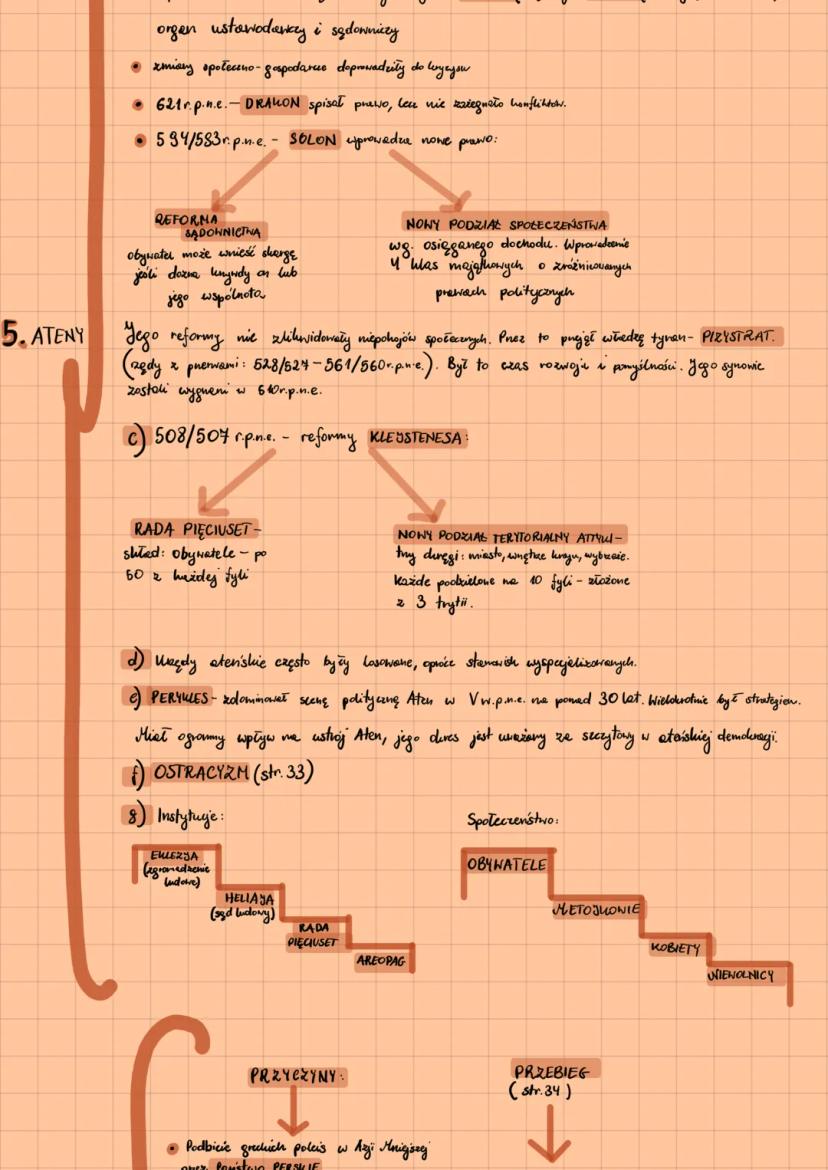 organ ustawodawczy i sądowniczy
• zmiany społeczno-gospodarcze doprowadziły do kryzysu
• 621 r.p.n.e. — DRAKON spisał prawo, lecz nie zażegnało konfliktów.
• 594/583 r.p.n.e. - SOLON wprowadza nowe prawo:
REFORMA
SĄDOWNICTWA
obywatel może wnieść skargę
jeśli dozna krzywdy on lub
jego wspólnota
NOWY PODZIAŁ SPOŁECZEŃSTWA
wg. osiąganego dochodu. Wprowadzenie
4 klas majątkowych o zróżnicowanych
prawach politycznych
5. ATENY
Jego reformy nie zlikwidowały niepokojów społecznych. Przez to przejął władzę tyran- PIZYSTRAT.
(rządy z przerwami: 528/527 - 561/560 r.p.n.e.). Był to czas rozwoju i pomyślności. Jego synowie
zostali wygnani w 510 r.p.n.e.
c) 508/507 r.p.n.e. - reformy KLEJSTENESA:
RADA PIĘCIUSET -
skład: obywatele - po
50 z każdej fyli
NOWY PODZIAŁ TERYTORIALNY ATTYKI -
trzy okręgi: miasto, wnętrze kraju, wybrzeże.
Każde podzielone na 10 fyli - złożone
z 3 trytii.
d) Urzędy ateńskie często były losowane, oprócz stanowisk wyspecjalizowanych.
e) PERYKLES - zdominował scenę polityczną Aten w V w.p.n.e. na ponad 30 lat. Wielokrotnie był strategiem.
Miał ogromny wpływ na ustrój Aten, jego okres jest uważany za szczytowy w ateńskiej demokracji.
f) OSTRACYZM (str. 33)
g) Instytucje:
EKLEZJA
(zgromadzenie
ludowe)
HELIAJA
(sąd ludowy)
RADA
PIĘCIUSET
AREOPAG
Społeczeństwo:
OBYWATELE
METOJKOWIE
KOBIETY
NIEWOLNICY
PRZYCZYNY:
• Podbicie greckich poleis w Azji Mniejszej
przez Państwo PERSKIE
PRZEBIEG
(str. 34)